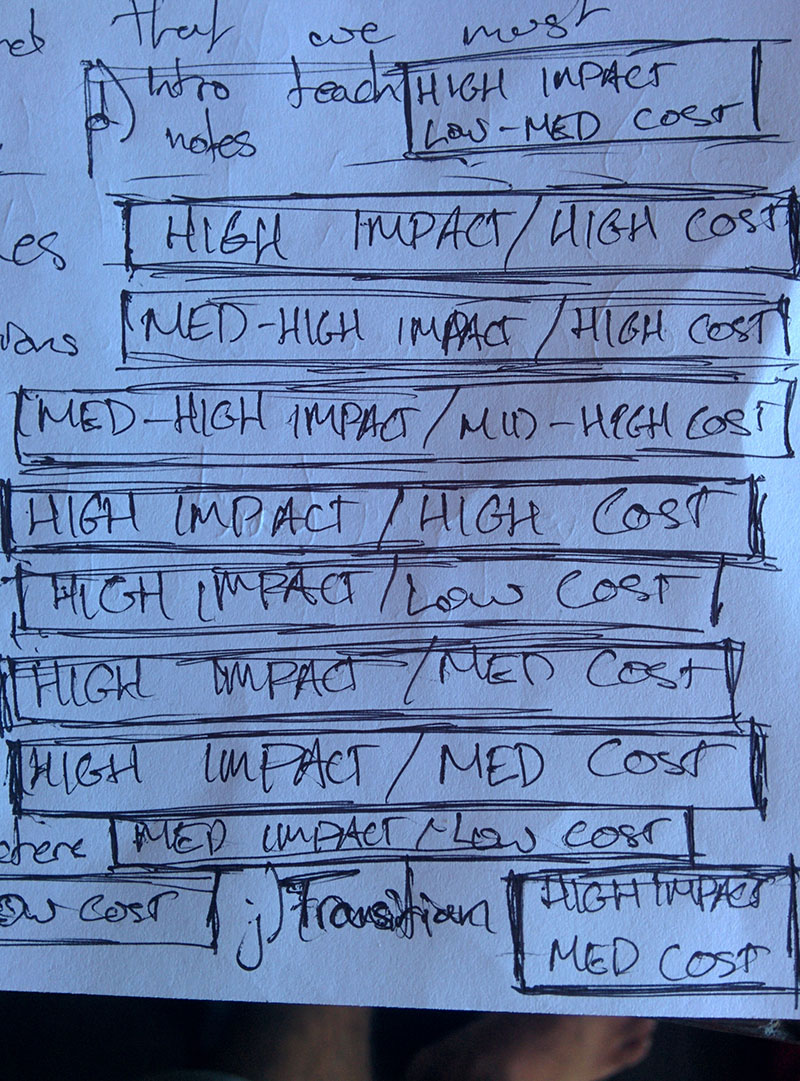 that we must
Intro teach HIGH IMPACT
notes LOW-MED COST
HIGH IMPACT/HIGH COST
MED-HIGH IMPACT/HIGH COST
MED-HIGH IMPACT/MID-HIGH COST
HIGH IMPACT/HIGH COST
HIGH IMPACT/LOW COST
HIGH IMPACT/MED COST
HIGH IMPACT/MED COST
MED IMPACT/LOW COST
COST j) Transition HIGH IMPACT
MED COST